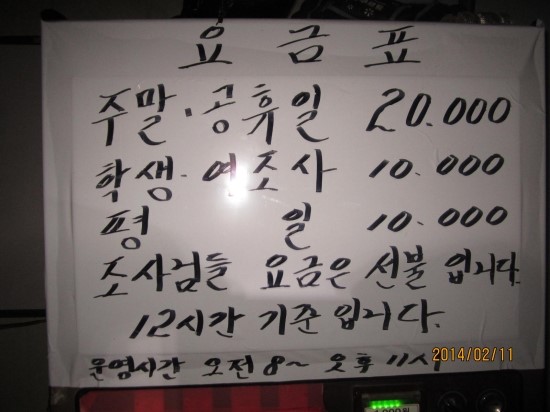 요금표
주말.공휴일 20.000
학생.여조사 10.000
평일 10.000
조사님들 요금은 선불 입니다.
12시간 기준입니다.
운영시간 오전 8~ 오후 11시
2014/02/11